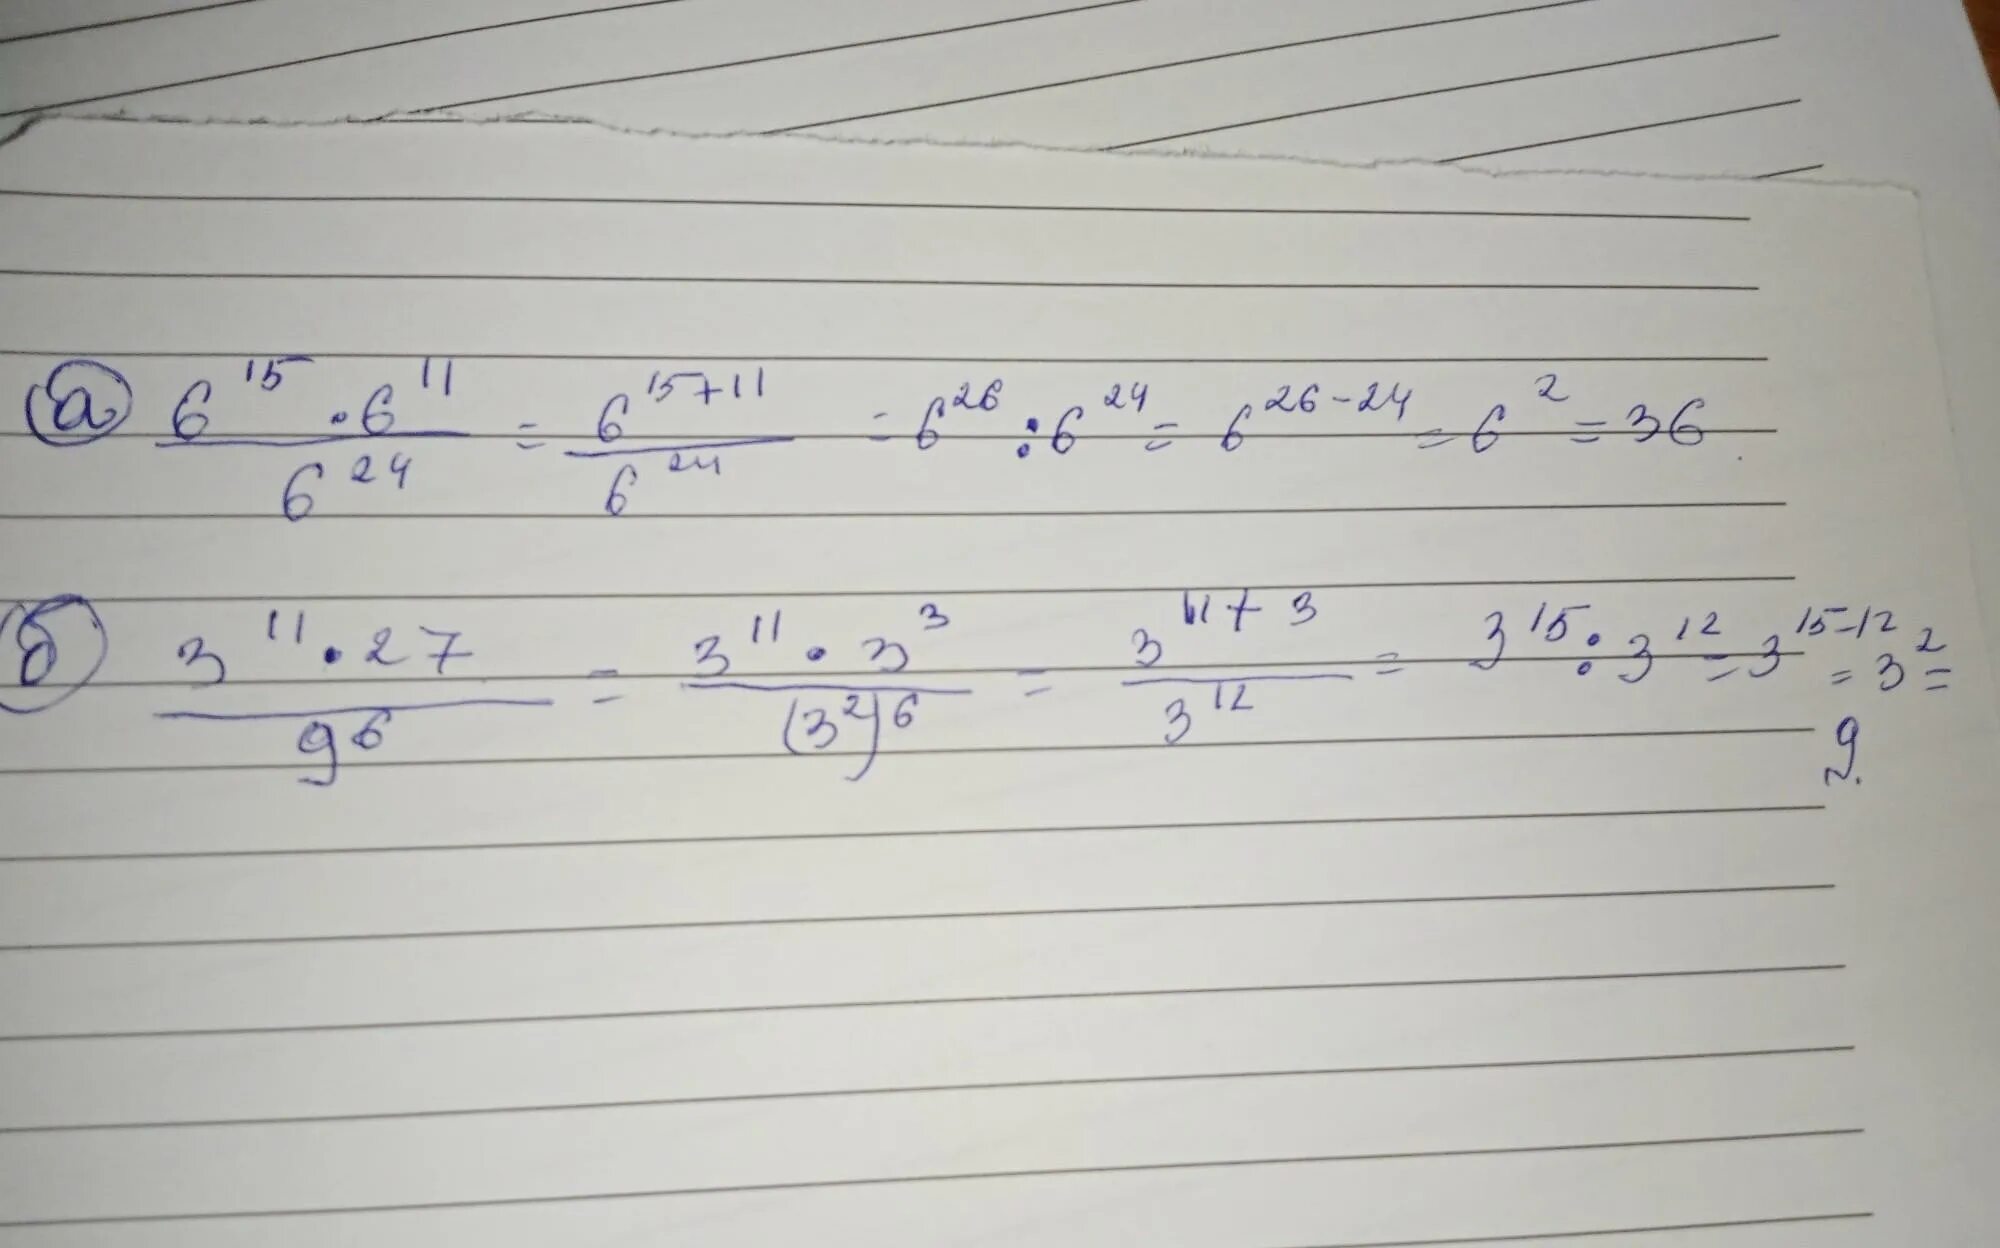 а) 6^15 · 6^11 / 6^24 = 6^15+11 / 6^24 = 6^26 : 6^24 = 6^26-24 = 6^2 = 36
б) 3^11 · 27 / 9^6 = 3^11 · 3^3 / (3^2)^6 = 3^11+3 / 3^12 = 3^15 : 3^12 = 3^15-12 = 3^2 =
9.